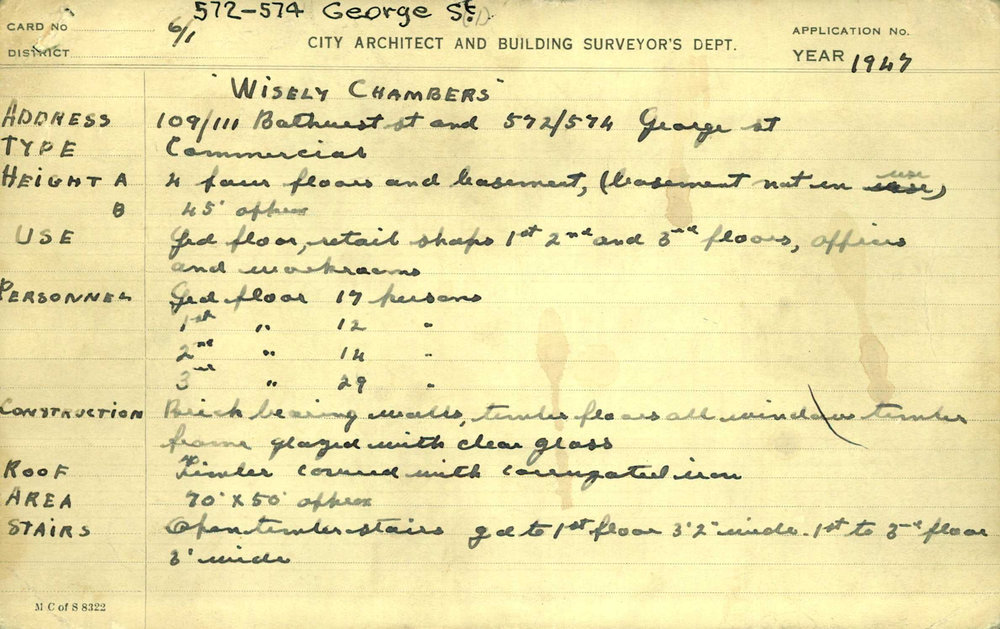 572-574 George St. (1)
CARD No 6/1
APPLICATION No.
DISTRICT
CITY ARCHITECT AND BUILDING SURVEYOR'S DEPT.
YEAR 1947
"WISELY CHAMBERS"
ADDRESS 109/111 Bathurst st and 572/574 George st
TYPE Commercial
HEIGHT A 4 four floors and basement, (basement not in use)
B 45' approx
USE Grd floor, retail shops 1st 2nd and 3rd floors, offices
and workrooms
PERSONNEL Grd floor 17 persons
1st " 12 "
2nd " 14 "
3rd " 29 "
CONSTRUCTION Brick bearing walls, timber floors all window timber
frame glazed with clear glass
ROOF Timber covered with corrugated iron
AREA 70' x 50' approx
STAIRS Open timber stairs gd to 1st floor 3'2" wide. 1st to 3rd floor
3' wide
M C of S 8322